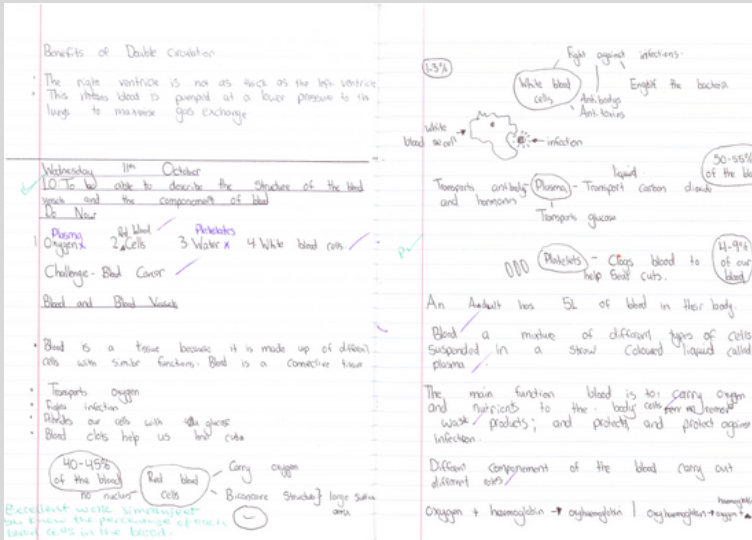 Benefits of Double Circulation
• The right ventricle is not as thick as the left ventricle
• This means blood is pumped at a lower pressure to the
lungs to maximise gas exchange
Wednesday 11th October
LO: To be able to describe the structure of the blood
vessels and the componement of blood
Do Now
Plasma Red blood Platelets
1 Oxygen x 2. Cells 3 Water x 4 White blood cells
Challenge - Blood Cancer
Blood and Blood Vessels
• Blood is a tissue because it is made up of different
cells with similar functions. Blood is a connective tissue
• Transports oxygen
• Fights infection
• Provides our cells with glucose
• Blood clots help us cuts
40-45%
of the blood
Red blood
cells
Carry oxygen
no nucleus
Biconcave Structure} large surface
area
Excellent work
you know the percentage of each
blood cells in the blood.
1-3%
Fight against infections.
White blood
cells
Engulf the bacteria
Antibodys
Antitoxins
White
blood cell
infection
50-55%
of the blo
liquid
Transports antibody Plasma - Transport carbon dioxide
and hormones
Transports glucose
Platelets - Clogs blood to
help Seal cuts.
4-9%
of our
blood
An Adult has 5L of blood in their body.
Blood a mixture of different types of cells
suspended in a straw coloured liquid called
plasma
The main function blood is to: carry oxygen
and nutrients to the body cells remove
waste products; and protects and protect against
infection.
Different componement of the blood carry out
different roles
haemoglobin
Oxygen + haemoglobin → oxyhaemoglobin | Oxyhaemoglobin → oxygen +